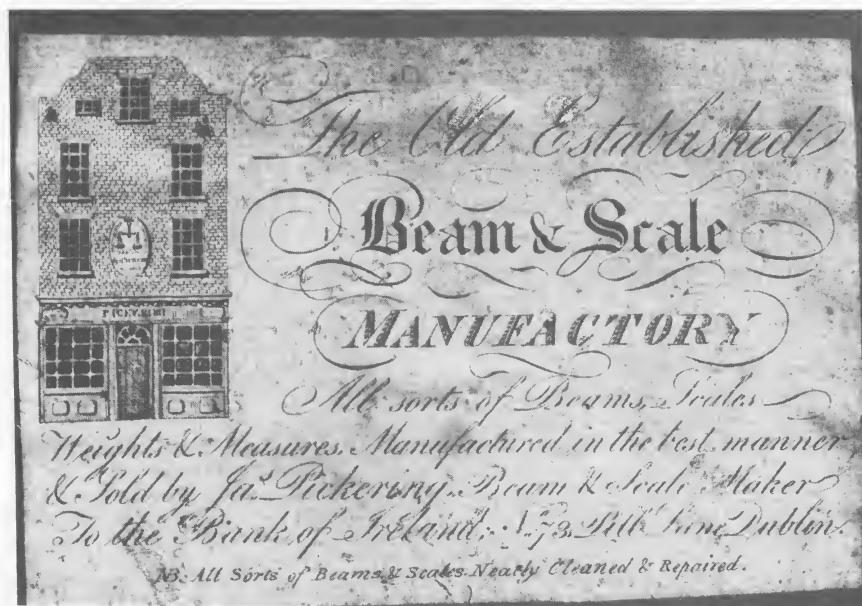 PICKERING
The Old Established
Beam & Scale
MANUFACTORY
All sorts of Beams, Scales
Weights & Measures, Manufactured in the best manner
& Sold by Jas. Pickering, Beam & Scale Maker
To the Bank of Ireland, No. 73, Pill Lane Dublin.
NB. All Sorts of Beams & Scales Neatly Cleaned & Repaired.